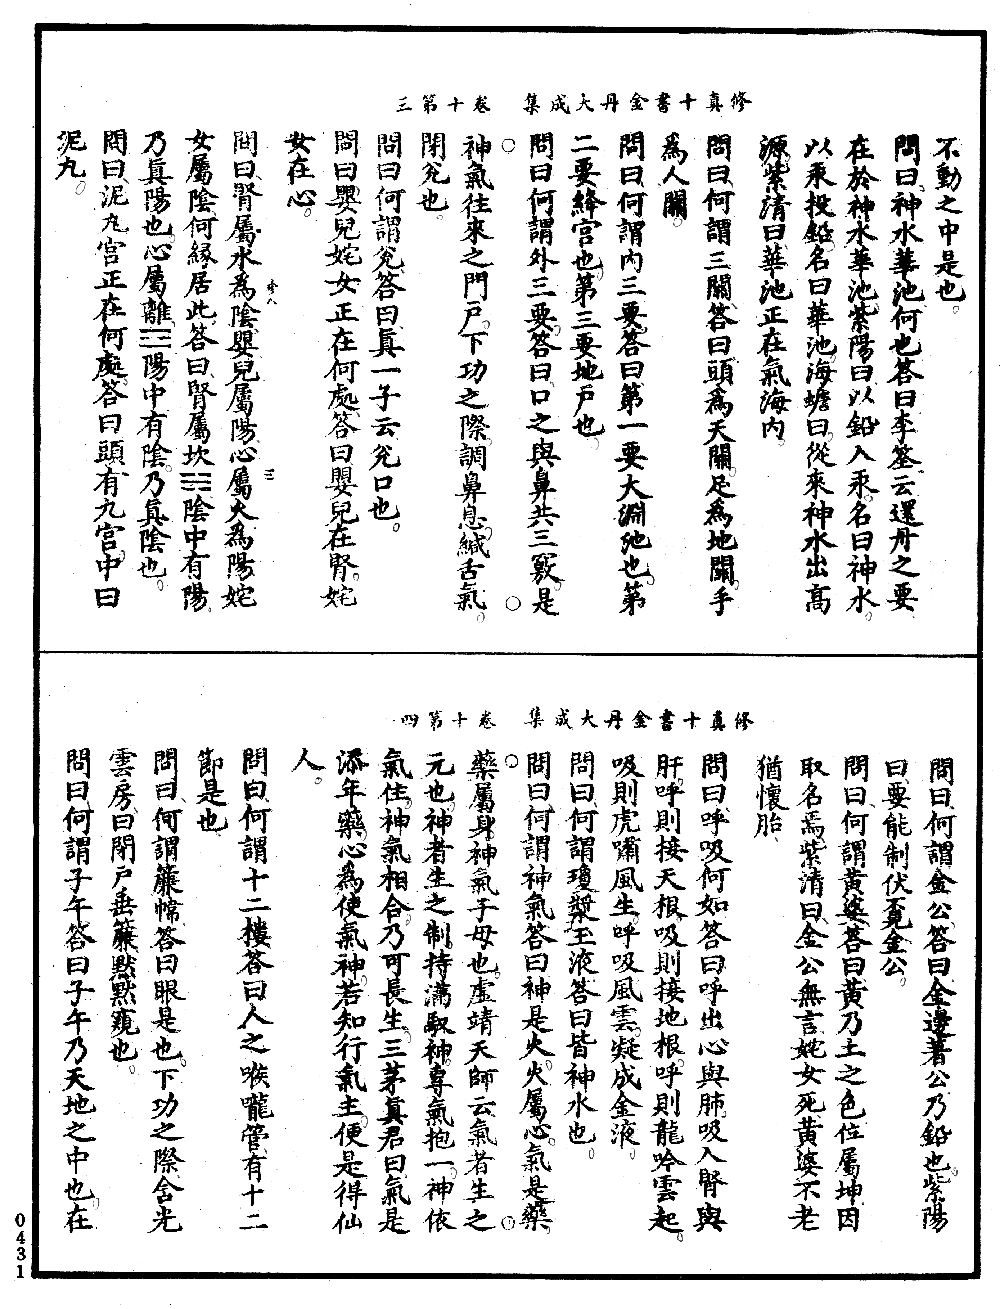 修真十書金丹大成集　卷十第三
不動之中是也。
問曰。神水華池何也。答曰。李筌云。還丹之要
在於神水華池。紫陽曰。以鉛入汞。名曰神水。
以汞投鉛。名曰華池。海蟾曰。從來神水出高
源。紫清曰。華池正在氣海內。
問曰。何謂三關。答曰。頭為天關。足為地關。手
為人關。
問曰。何謂內三要。答曰。第一要大淵池也。第
二要絳宮也。第三要地戶也。
問曰。何謂外三要。答曰。口之與鼻共三竅。是
○神氣往來之門戶。下功之際。調鼻息。緘舌氣。○
閉兌也。
問曰。何謂兌。答曰。真一子云。兌口也。
問曰。嬰兒姹女正在何處。答曰。嬰兒在腎。姹
女在心。
問曰。腎屬水為陰。嬰兒屬陽。心屬火為陽。姹
女屬陰。何緣居此。答曰。腎屬坎☵陰中有陽。
乃真陽也。心屬離☲陽中有陰。乃真陰也。
問曰。泥丸宮正在何處。答曰。頭有九宮。中曰
泥丸。
三
修真十書金丹大成集　卷十第四
問曰。何謂金公。答曰。金邊著公。乃鉛也。紫陽
曰。要能制伏覓金公。
問曰。何謂黃婆。答曰。黃乃土之色。位屬坤。因
取名焉。紫清曰。金公無言姹女死。黃婆不老
猶懷胎。
問曰。呼吸何如。答曰。呼出心與肺。吸入腎與
肝。呼則接天根。吸則接地根。呼則龍吟雲起。
吸則虎嘯風生。呼吸風雲。凝成金液。
問曰。何謂瓊漿玉液。答曰。皆神水也。
問曰。何謂神氣。答曰。神是火。火屬心。氣是藥。
○藥屬身。神氣子母也。虛靖天師云。氣者生之○
元也。神者生之制。持滿馭神。專氣抱一。神依
氣住。神氣相合。乃可長生。三茅真君曰。氣是
添年藥。心為使氣神。若知行氣主。便是得仙
人。
問曰。何謂十二樓。答曰。人之喉嚨管。有十二
節是也。
問曰。何謂簾幃。答曰。眼是也。下功之際。含光
雲房曰。閉戶垂簾默默窺也。
問曰。何謂子午。答曰。子午乃天地之中也。在
0431